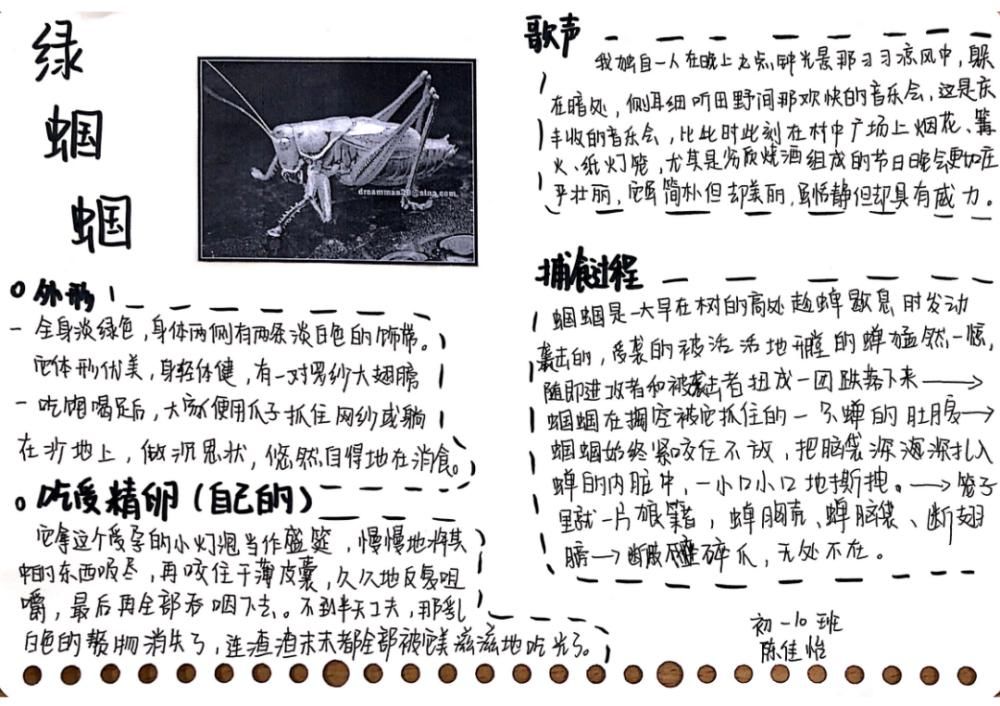 绿
蝈
蝈
dreamman20@sina.com
外形
- 全身淡绿色,身体两侧有两条淡白色的饰带。
它体形优美,身轻体健,有一对罗纱大翅膀
- 吃饱喝足后,大家便用爪子抓住网纱或躺
在沙地上,做沉思状,悠然自得地在消食。
吃受精卵(自己的)
它拿这个受孕的小灯泡当作盛筵,慢慢地将其
中的东西吸尽,再咬住干薄皮囊,久久地反复咀
嚼,最后再全部吞咽下去。不到半天工夫,那乳
白色的赘物消失了,连渣渣末末都全部被它美滋滋地吃光了。
歌声
我独自一人在晚上九点钟光景那习习凉风中,躲
在暗处,侧耳细听田野间那欢快的音乐会,这是庆
丰收的音乐会,比此时此刻在村中广场上烟花、篝
火、纸灯笼,尤其是劣质烧酒组成的节日晚会更如庄
严壮丽,它虽简朴但却美丽,虽恬静但却具有威力。
捕食过程
蝈蝈是一大早在树的高处趁蝉歇息时发动
袭击的,受袭的被活活地开膛的蝉猛然一惊,
随即进攻者和被袭击者扭成一团跌落下来→
蝈蝈在掏空被它抓住的一只蝉的肚腹→
蝈蝈始终紧咬住不放,把脑袋深深深扎入
蝉的内脏中,一小口小口地撕拽。→笼子
里就一片狼籍,蝉胸壳、蝉脑袋、断翅
膀→断肢碎爪,无处不在。
初一10班
陈佳怡